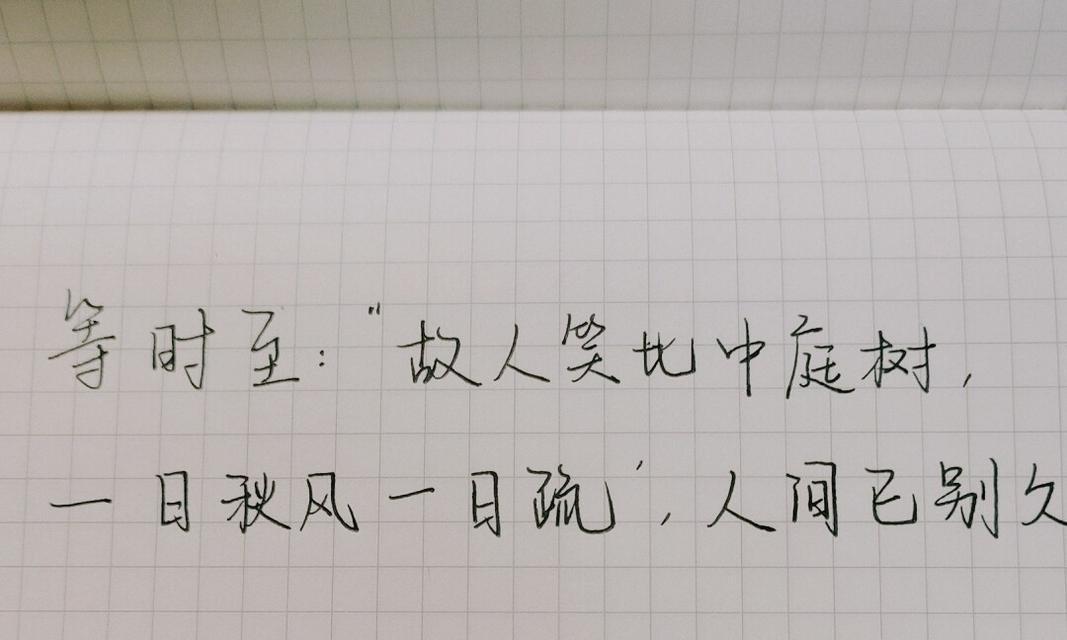 等时至："故人笑比中庭树，
一日秋风一日疏"，人间已别久